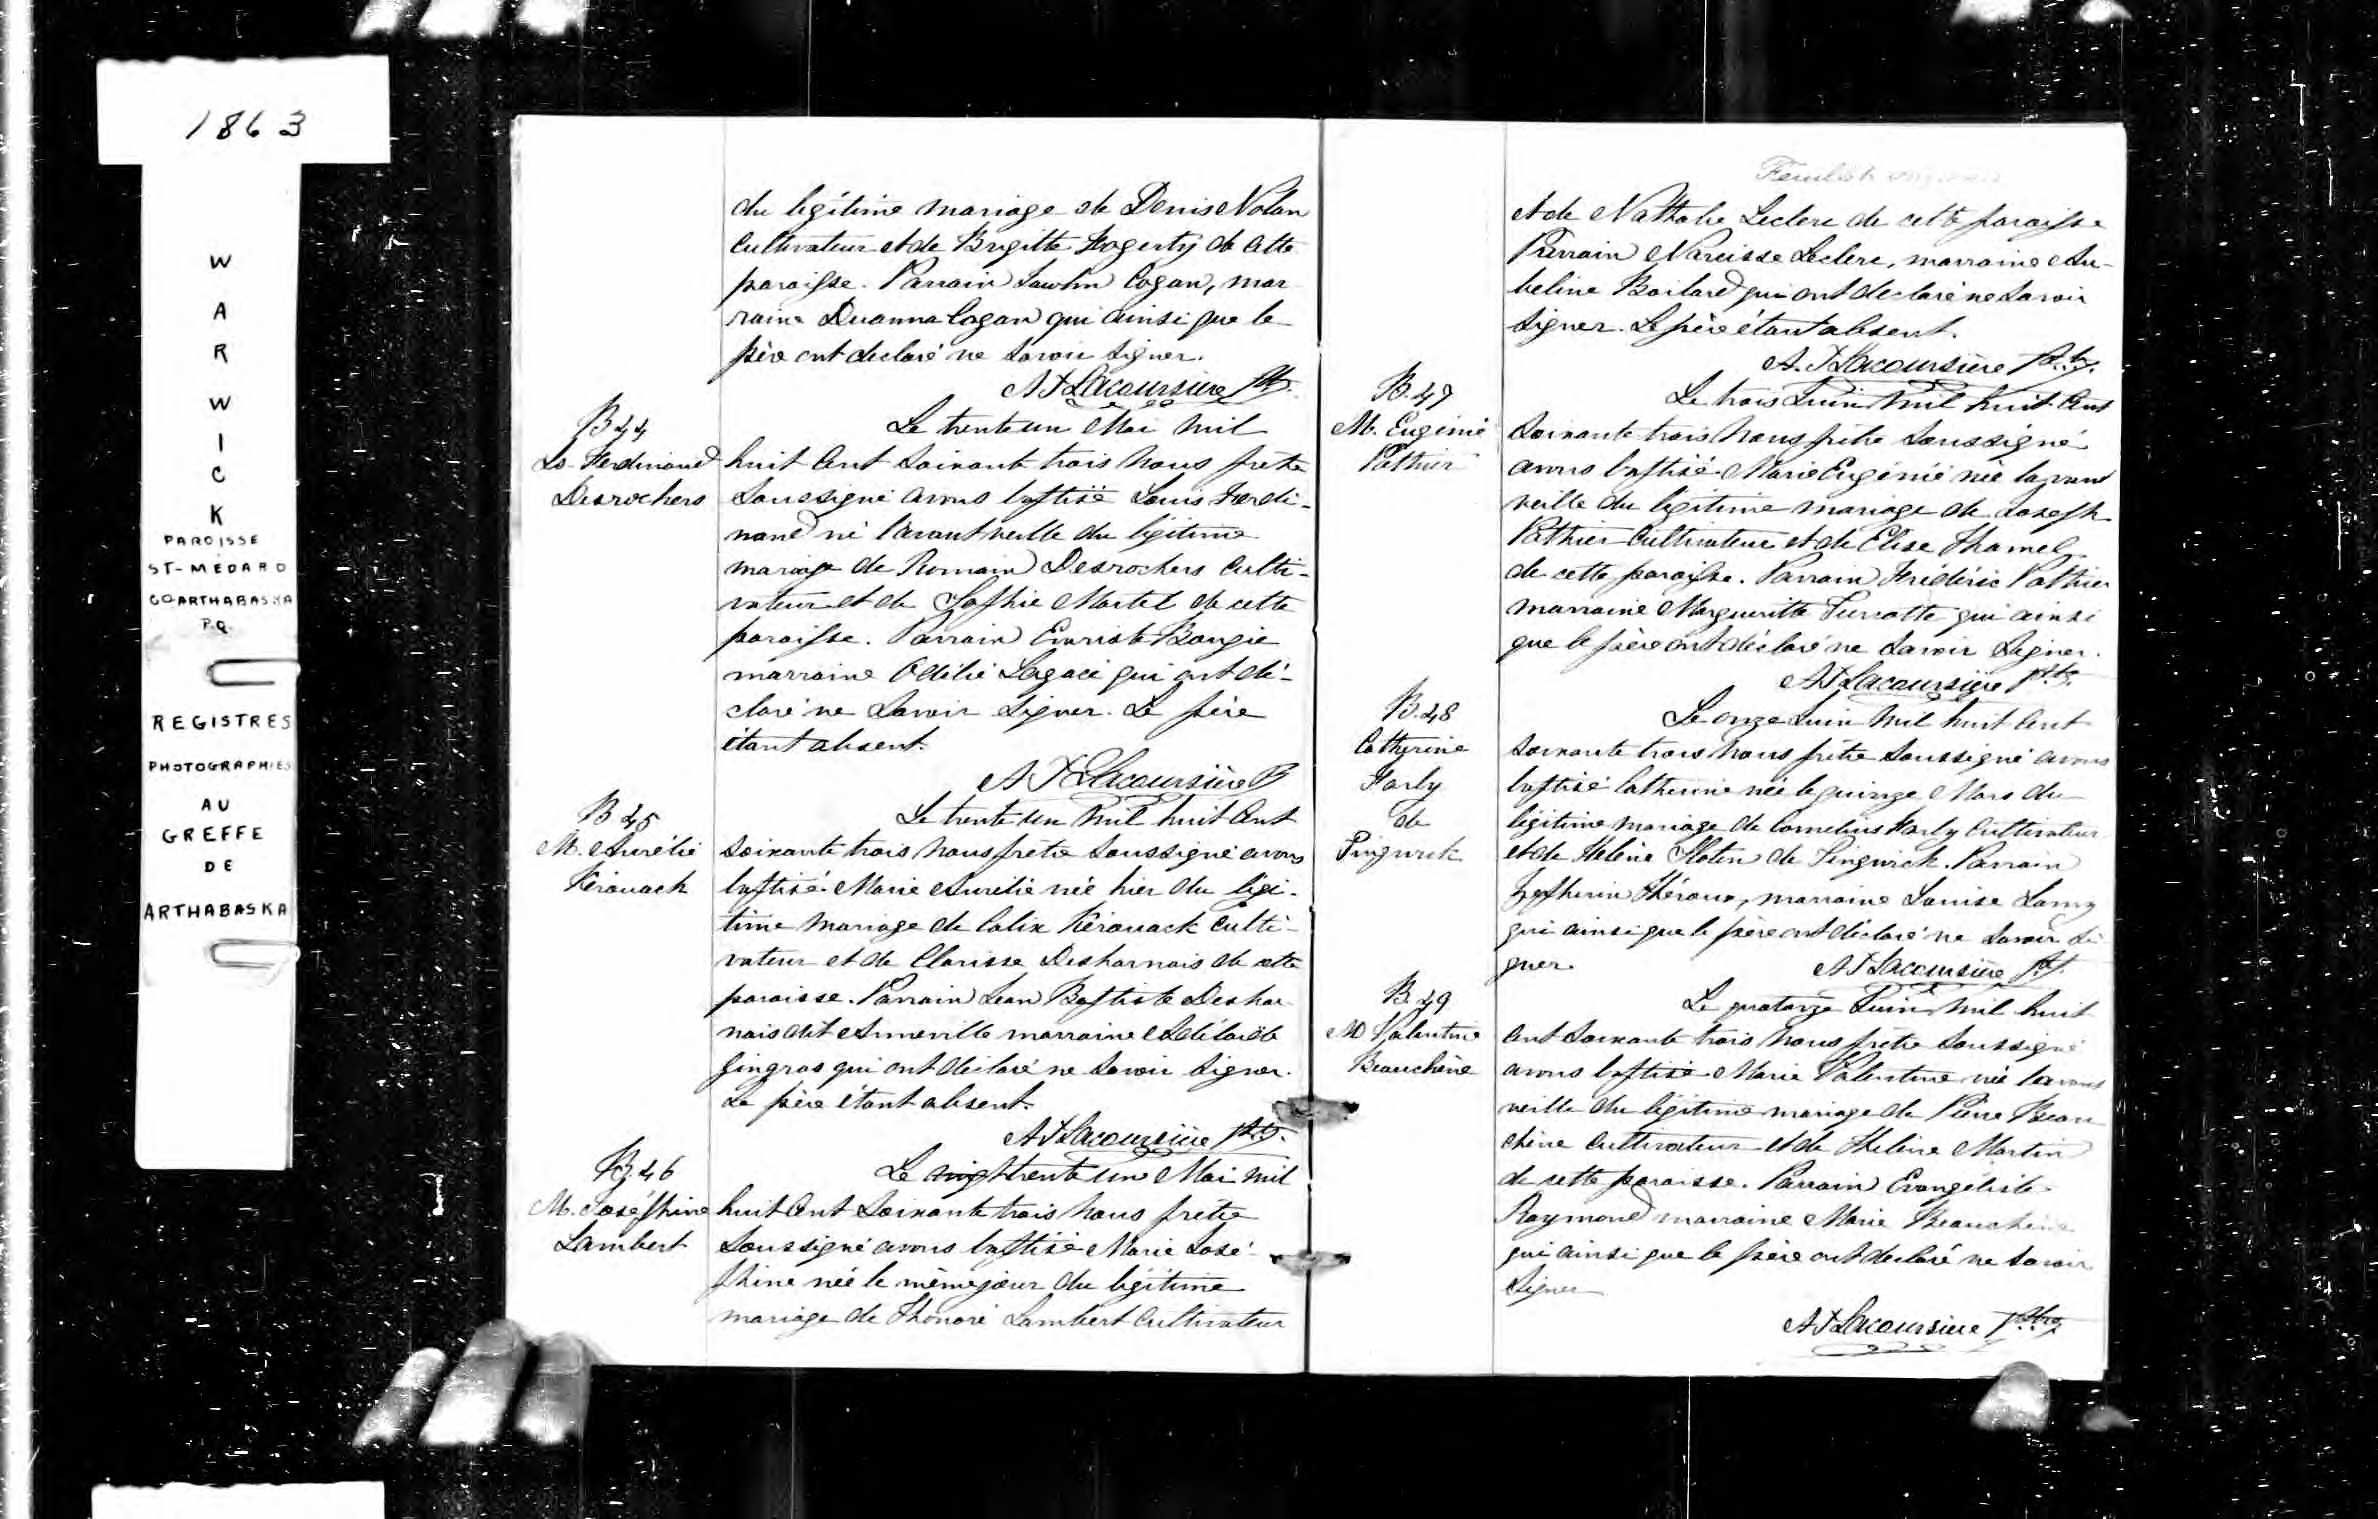 1863
W
A
R
W
I
C
K
PAROISSE
ST-MÉDARD
CO ARTHABASKA
P.Q.
REGISTRES
PHOTOGRAPHIES
AU
GREFFE
DE
ARTHABASKA
du légitime mariage de Denis Nolan
Cultivateur et de Brigitte Hogerty de cette
paroisse. Parrain Cogan, mar
raine Cogan qui ainsi que le
père ont declaré ne savoir signer.
A J Lacoursière Ptr.
B 44
Ls. Ferdinand
Desrochers
Le trente un Mai mil
huit Cent Soixante trois nous prêtre
Soussigné avons baptisé Louis Ferdi-
nand né l'avant veille du légitime
mariage de Romain Desrochers Culti-
vateur et de Sophie Martel de cette
paroisse. Parrain Evariste Bougie
marraine Odélie Lagacé qui ont dé-
claré ne Savoir Signer. Le père
étant absent.
A J Lacoursière P
B 45
M. Aurélie
Kérouack
Le trente un Mil huit Cent
Soixante trois nous prêtre Soussigné avons
baptisé Marie Aurélie née hier du légi-
time mariage de Calix Kérouack Culti-
vateur et de Clarisse Desharnais de cette
paroisse. Parrain Jean Baptiste Deshar
nais dit Anneville marraine Adélaïde
Gingras qui ont déclaré ne Savoir Signer.
Le père étant absent.
A J Lacoursière Ptr.
B. 46
M. Joséphine
Lambert
Le trente un Mai mil
huit Cent Soixante trois nous prêtre
Soussigné avons baptisé Marie José-
phine née le même jour du légitime
mariage de Honoré Lambert Cultivateur
Feuillet
et de Nathalie Leclerc de cette paroisse
Parrain Narcisse Leclerc, marraine
beline Boilard qui ont declaré ne Savoir
Signer. Le père étant absent.
A. J Lacoursière Ptr.
B. 47
M. Eugénie
Pothier
Le trois Juin Mil huit Cent
Soixante trois Nous prêtre Soussigné
avons baptisé Marie Eugénie née lavant
veille du légitime mariage de Joseph
Pothier Cultivateur et de Elise Hamel
de cette paroisse. Parrain Frédéric Pothier
marraine Margueritte Turcotte qui ainsi
que le père ont déclaré ne Savoir Signer.
A J Lacoursière Ptr.
B. 48
Catherine
Harly
de
Tingwick
Le onze Juin Mil huit Cent
Soixante trois Nous prêtre Soussigné avons
baptisé Catherine née le quinze Mars du
légitime mariage de Cornelius Harly Cultivateur
et de Helène de Tingwick. Parrain
Zepherin Héroux, marraine Louise Lamy
qui ainsi que le père ont déclaré ne Savoir Si
gner.
A J Lacoursière Ptr.
B. 49
M Valentine
Beauchêne
Le quatorze Juin Mil huit
Cent Soixante trois Nous prêtre Soussigné
avons baptisé Marie Valentine née lavant
veille du légitime mariage de Pierre Beau
chêne Cultivateur et de Hélène Martin
de cette paroisse. Parrain Evangeliste
Raymond marraine Marie Beauchêne
qui ainsi que le père ont declaré ne Savoir
Signer
A J Lacoursière Ptre